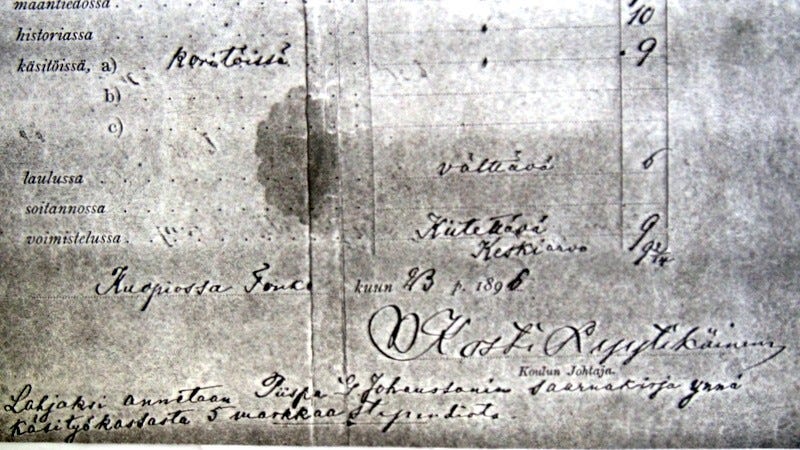 maantiedossa 10
historiassa " 9
käsitöissä, a) koritöissä "
b)
c)
laulussa välttävä 6
soitannossa
voimistelussa Kiitettävä 9
Keskiarvo
Kuopiossa Touko kuun 23 p. 1896
Kosti Lyytikäinen
Koulun Johtaja.
Lahjaksi annetaan Piispa G Johanssonin saarnakirja ynnä
käsityökassasta 5 markkaa Stipendiota